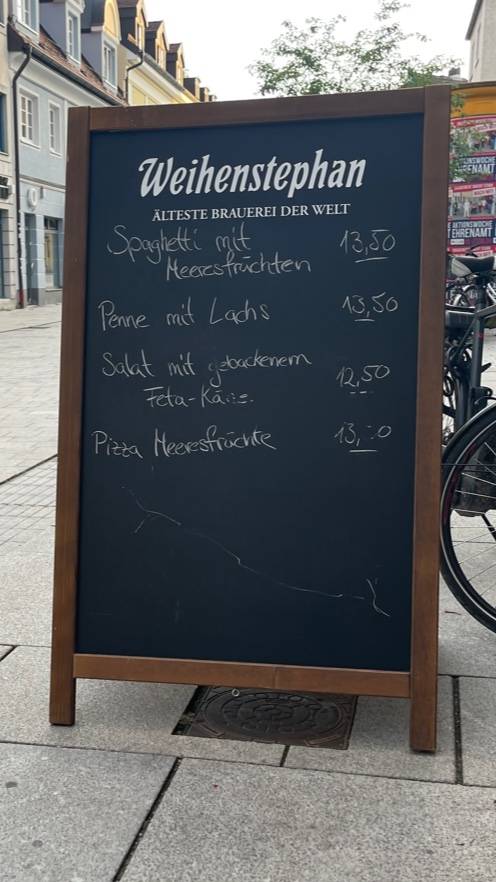 Weihenstephan
ÄLTESTE BRAUEREI DER WELT
Spaghetti mit 13,50
Meeresfrüchten
Penne mit Lachs 13,50
Salat mit gebackenem 12,50
Feta-Käse
Pizza Meeresfrüchte
EHRENAMT